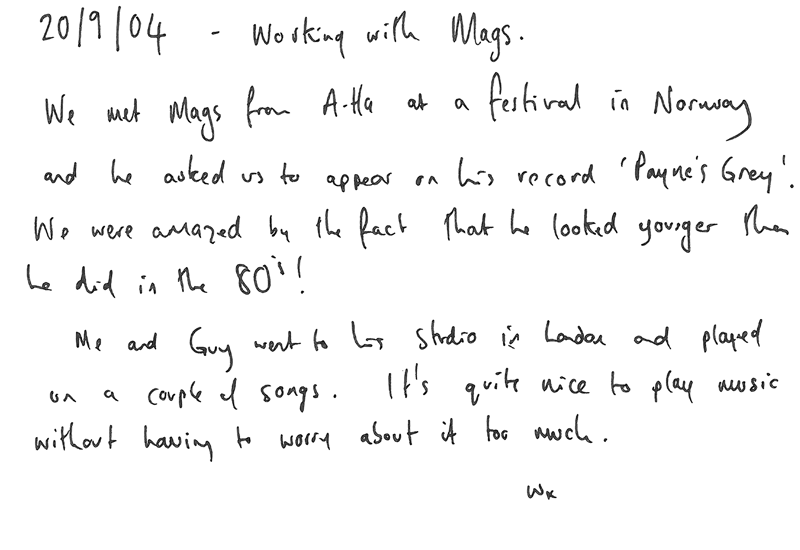 20/9/04 - Working with Mags.
We met Mags from A-Ha at a festival in Norway
and he asked us to appear on his record 'Payne's Grey'.
We were amazed by the fact that he looked younger than
he did in the 80's!
Me and Guy went to his studio in London and played
on a couple of songs. It's quite nice to play music
without having to worry about it too much.
Wx